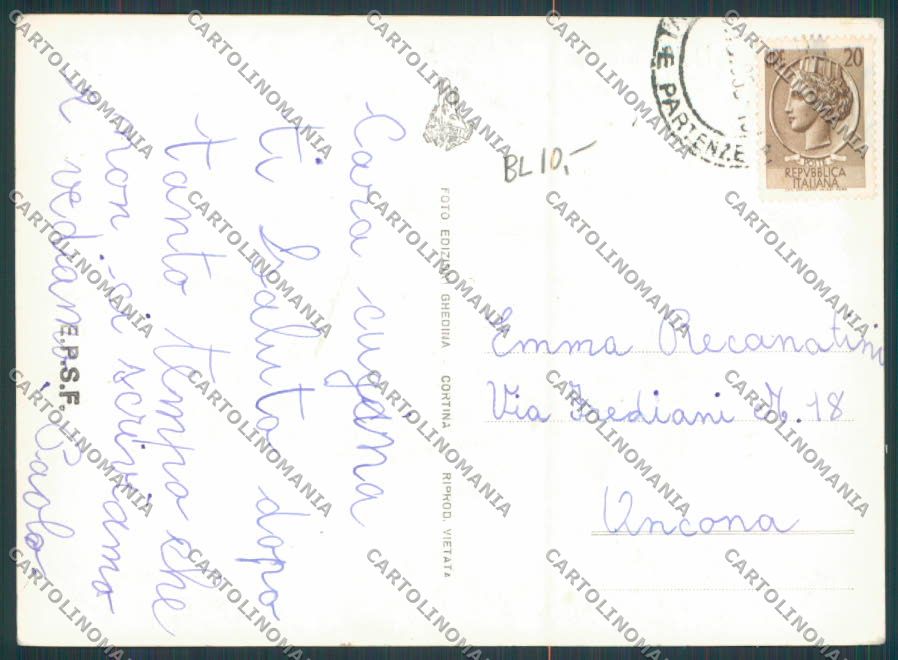 Cara cugina
ti saluto dopo
tanto tempo che
non ci scriviamo
e vediamo Paolo
E.P.S.F.
FOTO EDIZIONI GHEDINA - CORTINA - RIPROD. VIETATA
BL 10,-
E PARTENZE
20
POSTE
REPVBBLICA
ITALIANA
Emma Recanatini
Via Frediani N. 18
Ancona
CARTOLINOMANIA